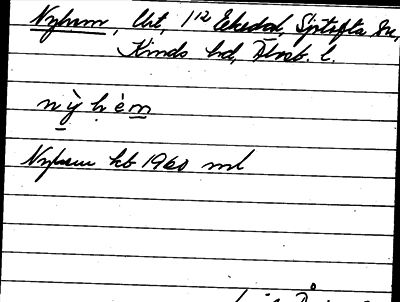 Nyhem, lht, 1¹² Ekedal, Sjötofta sn,
Kinds hd, Älvsb. l.
nỳ hèm
Nyhem kb 1960 ml